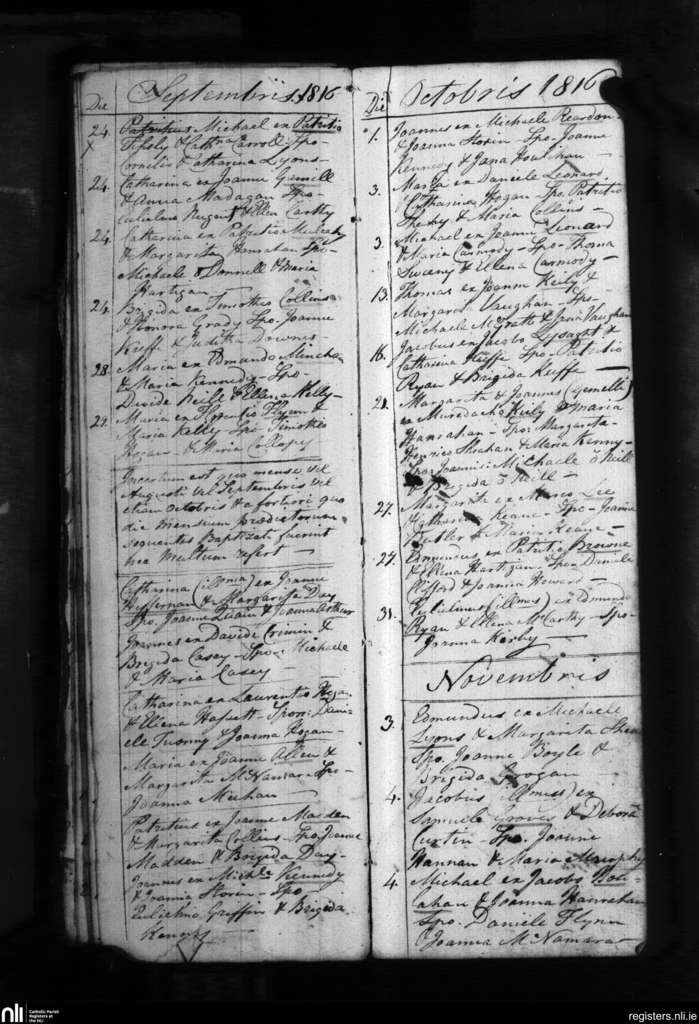 Die
Septembris 1816
24. Patritius Michael ex Patritio
X Fiholy & Cathna Carroll Spo
Cornelio & Catharina Lyons
24. Catharina ex Joanne
& Anna Madagan Spo
Nugent & Ellen Carthy
24. Catharina ex Patritio Mulcahy
& Margarita Hanrahan Spo
Michaele O Donnell & Maria
Hartigan
24. Brigida ex Timotheo Collins
& Honora Grady Spo. Joanne
Keeffe & Juditha Downes
28. Maria ex Edmundo Minchan
& Maria Kennedy Spo
Davide Neill & Ellena Kelly
29. Maria ex Flynn &
Maria Kelly Spo Timotheo
Hogan & Maria Collopy
Incertum est quo mense vel
Augusti vel Septembris vel
etiam Octobris & a fortiori quo
die mensium praedictorum
sequentes Baptizati fuerint
nec multum refert
Catharina (illma) ex
Heffernan & Margarita Day
Spo. Joanne Quain & Joanna Arthur
Joannes ex Davide Crimin &
Brigida Casey Spo Michaele
& Maria Casey
Catharina ex Laurentio Hogan
& Ellena Hassett Spon: Dani-
ele Tuomy & Joanna Hogan
Maria ex Joanne Allen &
Margarita McNamara Spo
Joanna Meehan
Patritius ex Joanne Madden
& Margarita Collins Spo Joanne
Madden & Brigida Day
Joannes ex Michle Kennedy
& Joanna Florin Spo
Gulielmo Griffin & Brigida
Kennedy
Die
Octobris 1816
1. Joannes ex Michaele Reardon
& Joanna Florin Spo. Joanne
Kennedy & Jana Houlihan
3. Maria ex Daniele Leonard
Catharina Hogan Spo Patritio
Sheehy & Maria Collins
3. Michael ex Joanne Leonard
& Maria Carmody Spo Thoma
Sweeny & Ellena Carmody
13. Thomas ex Joanne Keily &
Margarita Vaughan Spo
Michaele McGrath & Vaughan
16. Jacobus ex Jacobo Lysaght &
Catharina Keiffe Spo Patritio
Ryan & Brigida Keiffe
21. Margarita & Joannes (Gemelli)
ex Muredacho Keily & Maria
Hanrahan Spo: Margarita
Henrico Shaham & Maria Kenny
Spo: Joannis: Michaele O Neill
& Brigida O Neill
27. Margarita ex Lee
& Catharina Keane Spo Joanne
Butler & Maria Keane
27. Edmundus ex Patritio Browne
& Ellena Hartigan Spo Daniele
Clifford & Joanna Howard
31. Gulielmus (illmus) ex Edmundo
Ryan & Ellena McCarthy Spo
Joanna Kerby
Novembris
3. Edmundus ex Michaele
Lyons & Margarita Shea
Spo. Joanne Boyle &
Brigida Grogan
4. Jacobus (illmus) ex
Samuele Groves & Debora
Curtin Spo. Joanne
Hannan & Maria Murphy
4. Michael ex Jacobo Hou-
lahan & Joanna Hanrahan
Spo. Daniele Flynn
& Joanna McNamara
nli
Catholic Parish
Registers at
the NLI
registers.nli.ie